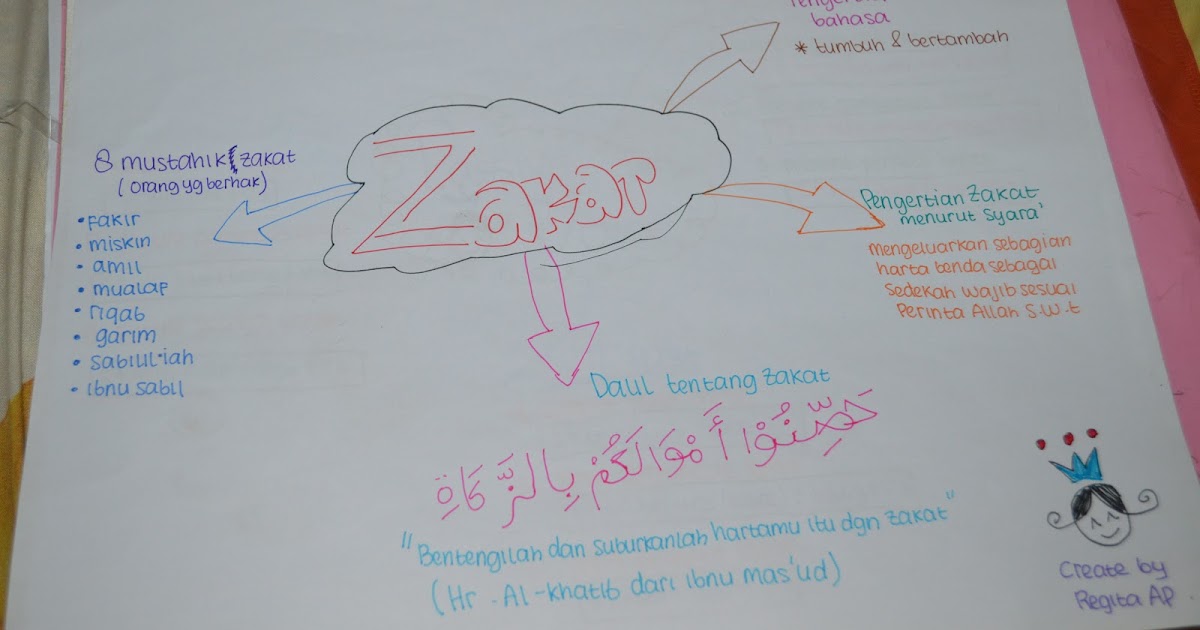 bahasa
* tumbuh & bertambah
Zakat
8 mustahik zakat
(orang yg berhak)
• fakir
• miskin
• amil
• mualap
• riqab
• garim
• sabilil-lah
• ibnu sabil
Pengertian Zakat
menurut syara'
mengeluarkan sebagian
harta benda sebagai
Sedekah wajib sesuai
Perinta Allah S.W.t
Daul tentang zakat
حَصِّنُوْا أَمْوَالَكُمْ بِالزَّكَاةِ
"Bentengilah dan suburkanlah hartamu itu dgn zakat"
(Hr . Al-khatib dari ibnu mas'ud)
Create by
Regita AP